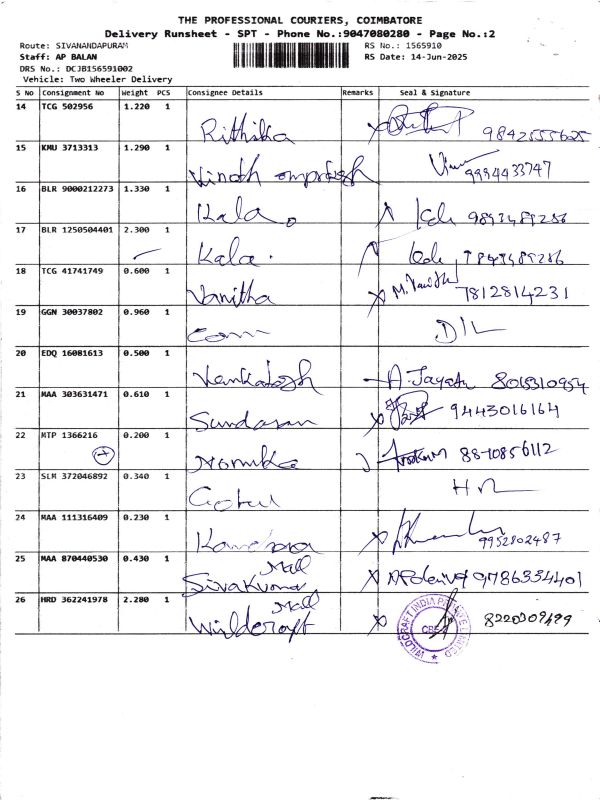 THE PROFESSIONAL COURIERS, COIMBATORE
Delivery Runsheet - SPT - Phone No.:9047080280 - Page No.:2
Route: SIVANANDAPURAM RS No.: 1565910
Staff: AP BALAN RS Date: 14-Jun-2025
DRS No.: DCJB156591002
Vehicle: Two Wheeler Delivery
S No Consignment No Weight PCS Consignee Details Remarks Seal & Signature
14 TCG 502956 1.220 1
Rithika 9842555625
15 KMU 3713313 1.290 1
Vinoth omprakash 9994433747
16 BLR 9000212273 1.330 1
Kala
17 BLR 1250504401 2.300 1
Kala.
18 TCG 41741749 0.600 1
Vanitha 7812814231
19 GGN 30037802 0.960 1
D/L
20 EDQ 16081613 0.500 1
Venkatesh
21 MAA 303631471 0.610 1
Sundaran 9443016164
22 MTP 1366216 0.200 1
8870856112
23 SLM 372046892 0.340 1
Gokul
24 MAA 111316409 0.230 1
9952802487
25 MAA 870440530 0.430 1
Mall
Sivakumar 9786334401
26 HRD 362241978 2.280 1
Mall
Wildcraft 8220309499
WILDCRAFT INDIA PRIVATE LIMITED
CBE